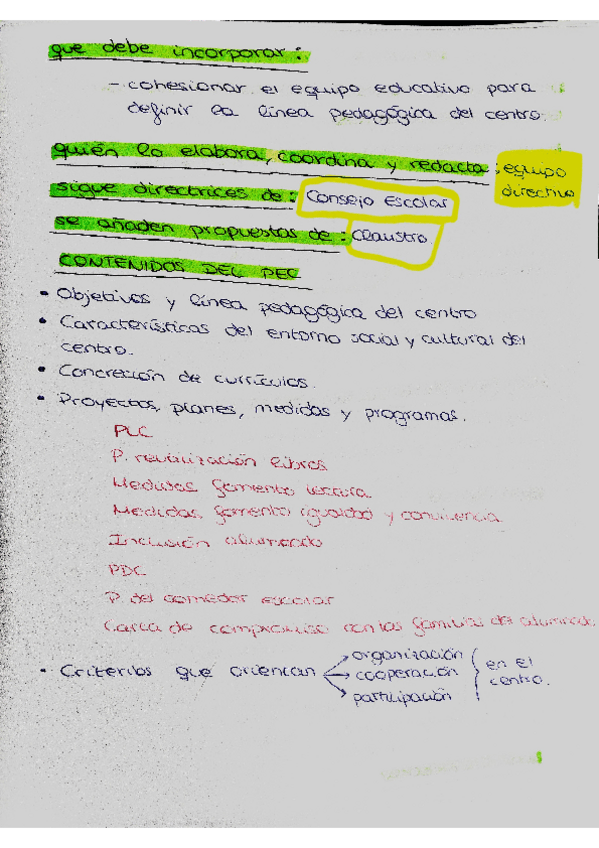 que debe incorporar:
- cohesionar el equipo educativo para
definir la línea pedagógica del centro.
quién lo elabora, coordina y redacta: equipo
directivo
sigue directrices de: Consejo Escolar
se añaden propuestas de: Claustro
CONTENIDOS DEL PEC
• Objetivos y línea pedagógica del centro
• Características del entorno social y cultural del
centro.
• Concreción de currículos.
• Proyectos, planes, medidas y programas.
PLC
P. reutilización libros
Medidas fomento lectura
Medidas fomento igualdad y convivencia
Inclusión alumnado
PDC
P. del comedor escolar
Carta de compromiso con las familias del alumnado.
• Criterios que orientan
organización
cooperación
participación
en el
centro.